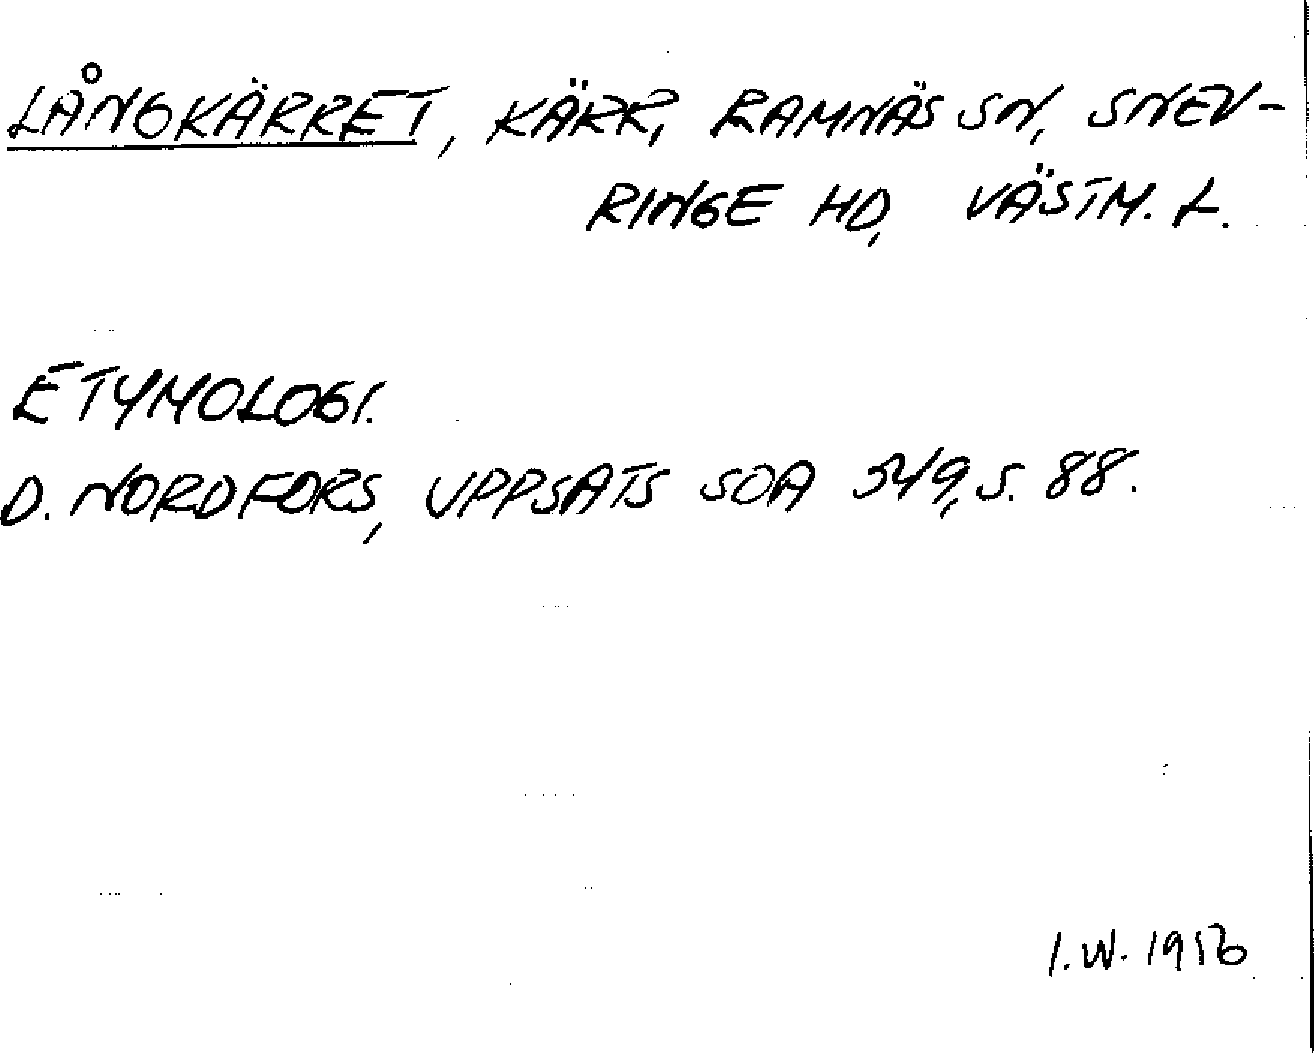 LÅNGKÄRRET, KÄRR, RAMNÄS SN, SNEV-
RINGE HD, VÄSTM. L.
ETYMOLOGI.
D. NORDFORS, UPPSATS SOA 549, S. 88.
I.W.